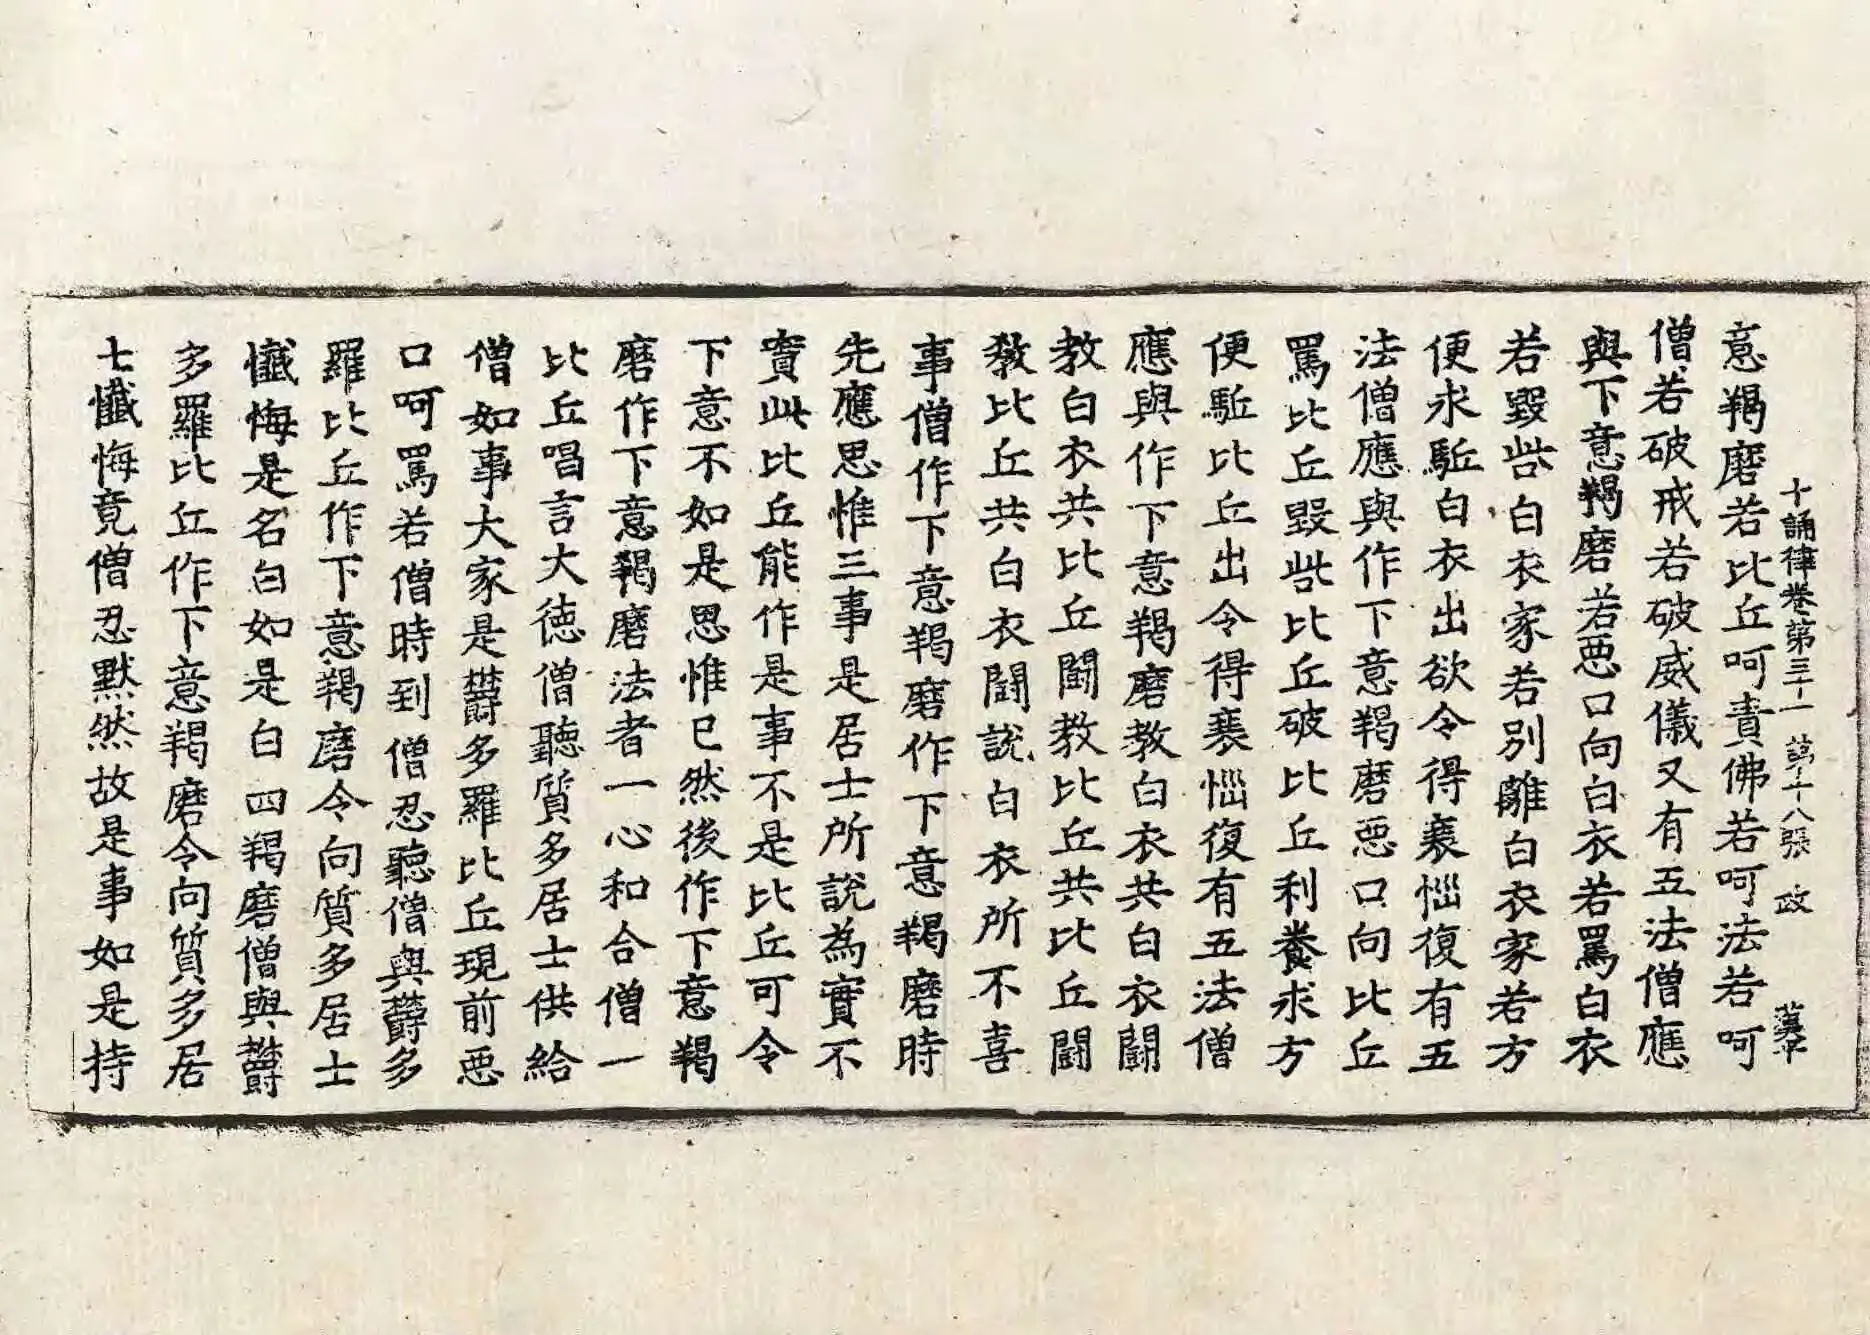 十誦律卷第三十一 第十八張 政
意羯磨若比丘呵責佛若呵法若呵
僧若破戒若破威儀又有五法僧應
與下意羯磨若惡口向白衣若罵白衣
若毀呰白衣家若別離白衣家若方
便求駈白衣出欲令得衰惱復有五
法僧應與作下意羯磨惡口向比丘
罵比丘毀呰比丘破比丘利養求方
便駈比丘出令得衰惱復有五法僧
應與作下意羯磨教白衣共白衣鬪
教白衣共比丘鬪教比丘共比丘鬪
教比丘共白衣鬪說白衣所不喜
事僧作下意羯磨作下意羯磨時
先應思惟三事是居士所說為實不
實此比丘能作是事不是比丘可令
下意不如是思惟已然後作下意羯
磨作下意羯磨法者一心和合僧一
比丘唱言大德僧聽質多居士供給
僧如事大家是欝多羅比丘現前惡
口呵罵若僧時到僧忍聽僧與欝多
羅比丘作下意羯磨令向質多居士
懺悔是名白如是白四羯磨僧與欝
多羅比丘作下意羯磨令向質多居
士懺悔竟僧忍默然故是事如是持